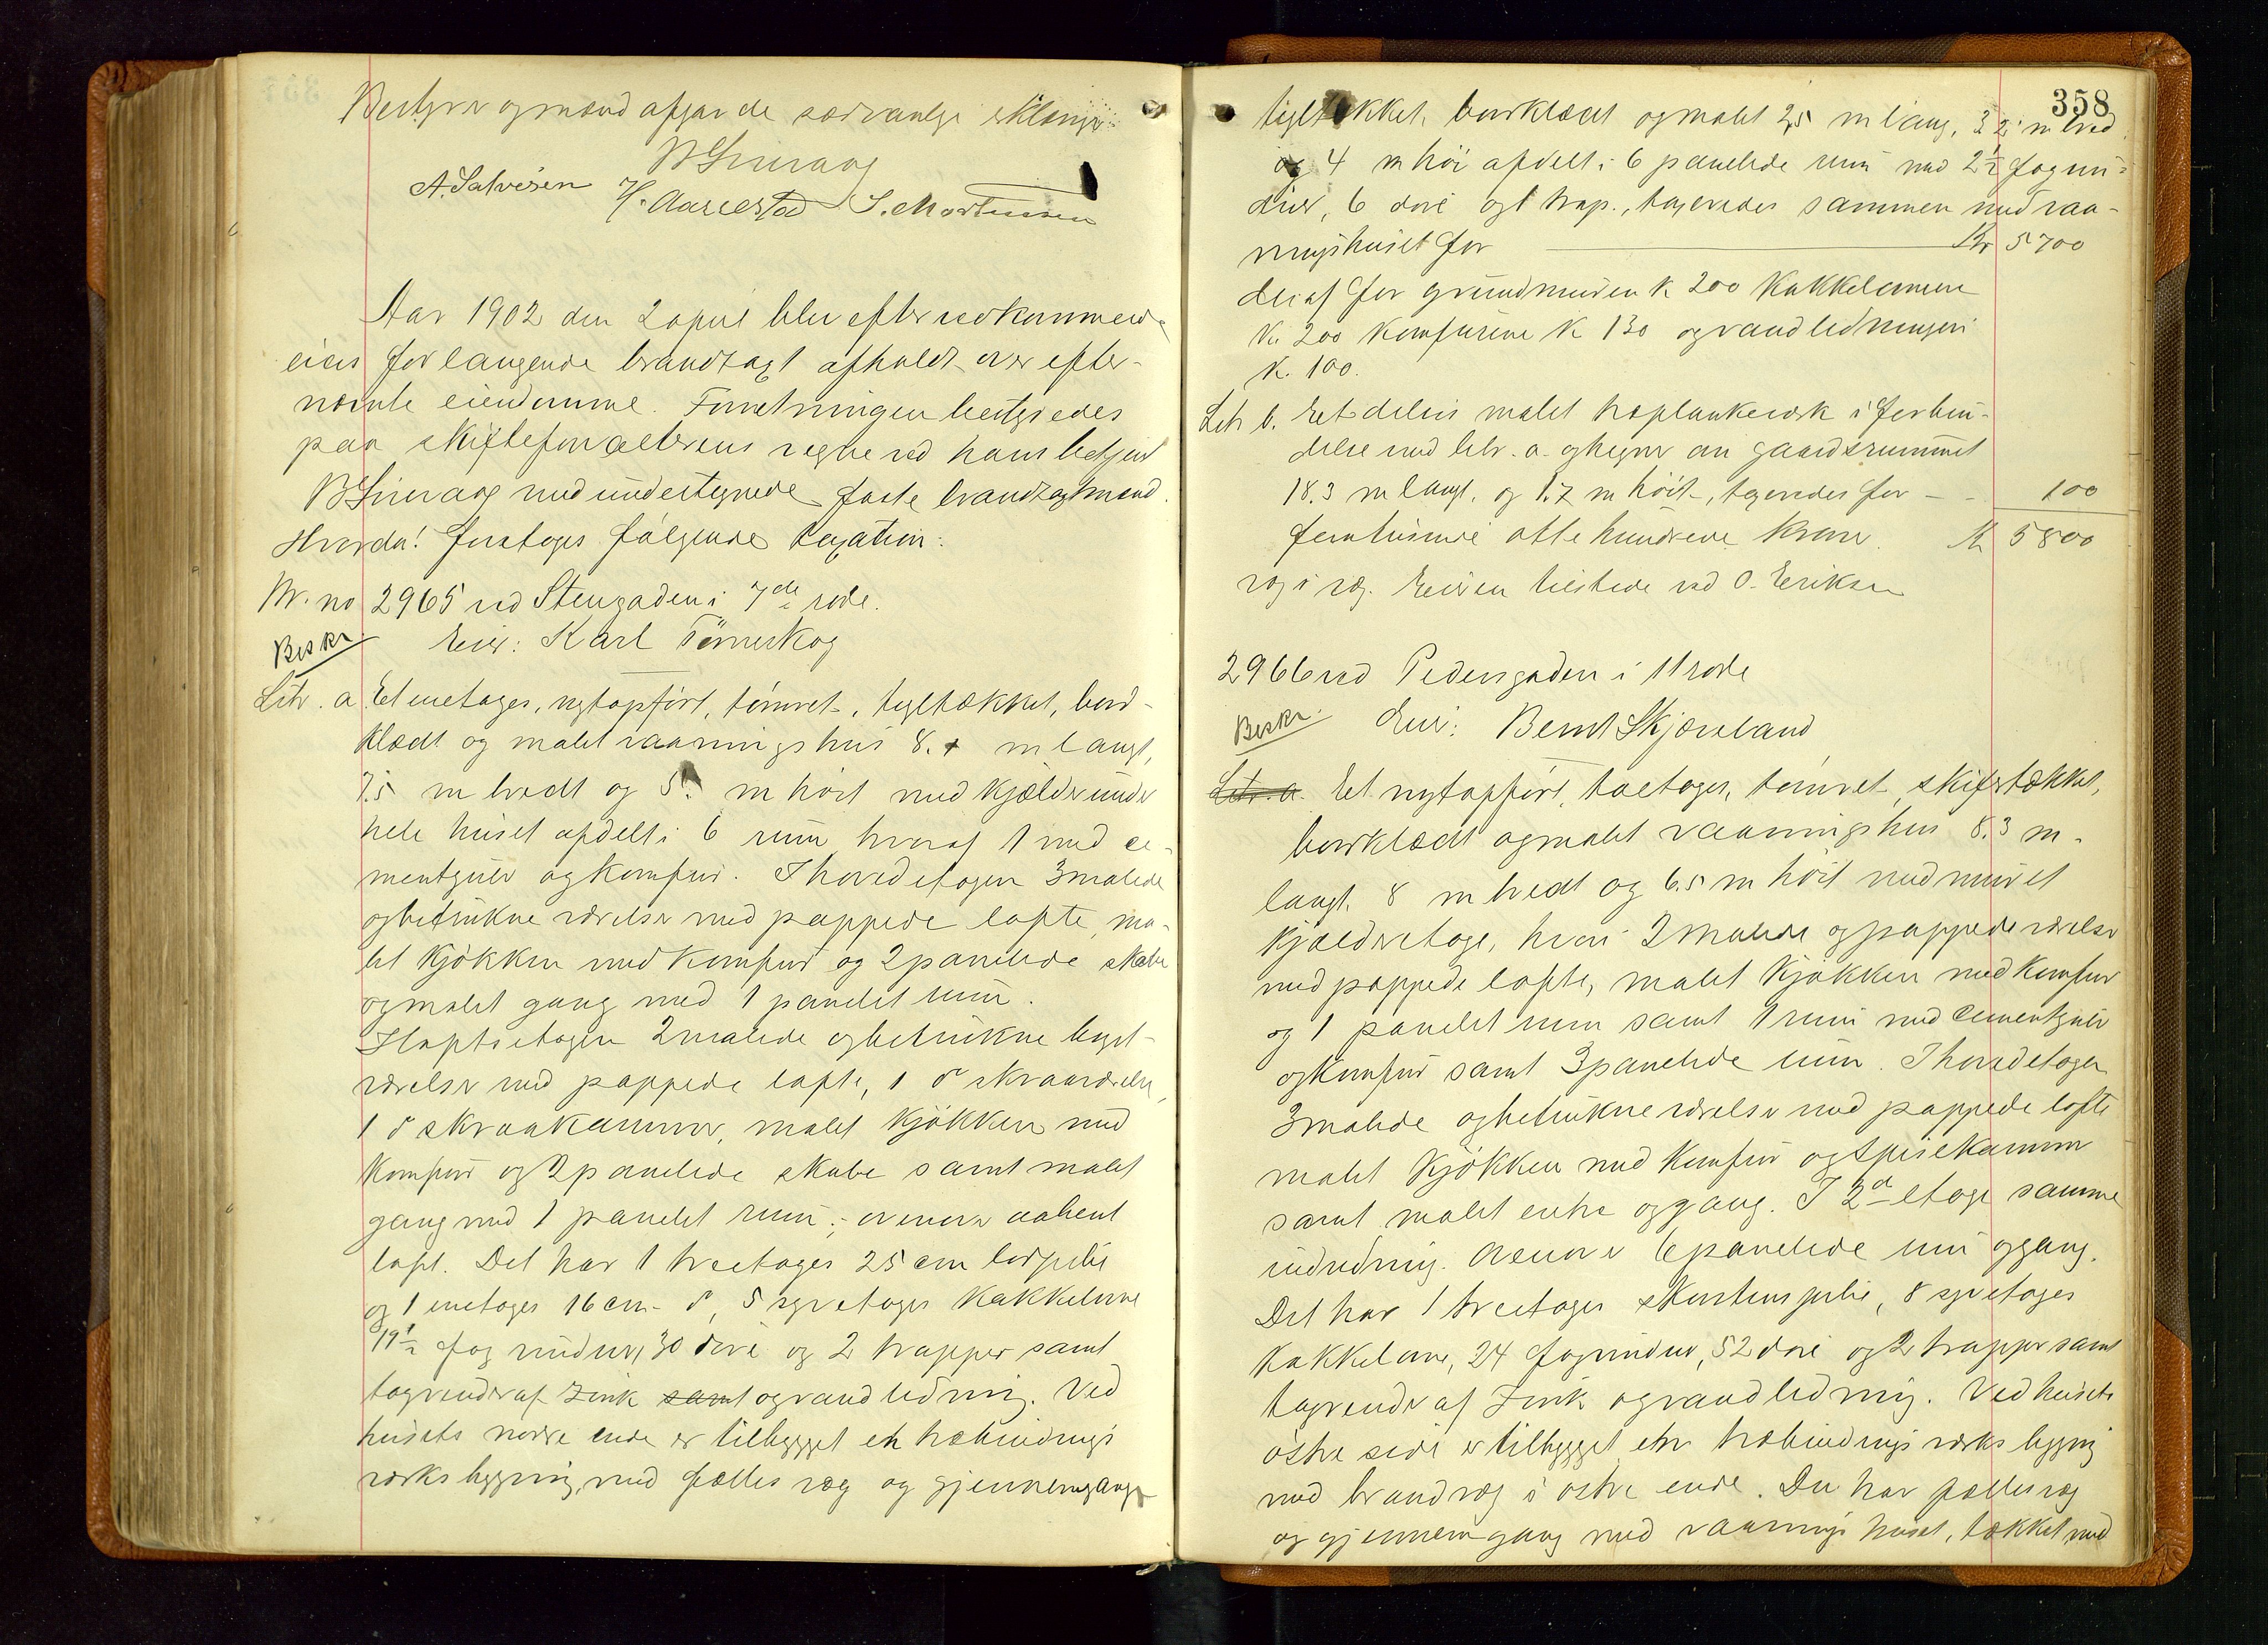 Bestyrer og mænd afgav de sædvanlige erklæringer
B Sinvaag
A. Salvesen H. Aarrestad S. Mortensen
Aar 1902 den 2 april blev efter vedkommende
eiers forlangende brandtaxt afholdt over efter-
nævnte eiendomme. Forretningen bestyredes
paa skifteforvalterens vegne ved hans betjent
B Sinvaag med undertegnede faste brandtaxtmænd.
Hvorda! foretoges følgende taxation:
Mr. no 2965 ved Stengaden i 7de rode.
Beskr Eier: Karl Törneskog
Litr. a Et enetages, nytopført, tømret, tegltækket, bord-
klædt og malet vaaningshus 8. m langt,
7.5 m bredt og 5. m høit med kjelder under
hele huset afdelt i 6 rum hvoraf 1 med ce-
mentgulv og komfur. I hovedetagen 3 malede
og betrukne værelser med pappede lofte, ma-
let kjøkken med komfur og 2 panelede skabe
og malet gang med 1 panelet rum.
I loftsetagen 2 malede og betrukne kvist-
værelser med pappede lofte, 1 do skraaværelse,
1 do skraakammer, malet kjøkken med
komfur og 2 panelede skabe samt malet
gang med 1 panelet rum; ovenover aabent
loft. Det har 1 treetages 25 cm lodpibe
og 1 enetages 16 cm do, 5 syvetages kakkelovne
19½ fag vinduer, 30 døre og 2 trapper samt
tagrender af zink samt og vandledning. Ved
husets nordre ende er tilbygget en træbindings
verksbygning, med fælles væg og gjennemgang
358
tegltækket, bordklædt og malet 2,5 m lang, 3,2 m bred
og 4 m høi afdelt i 6 panelede rum med 2½ fag vin-
duer, 6 døre og 1 trap., taxeredes sammen med vaa-
ningshuset for Kr 5700
deraf for grundmuren K 200 kakkelovnene
K. 200 komfurene K 130 og vandledningen
K. 100.
Litr b. Et deleis malet træplankeværk i forbin-
delse med litr. a og hegner om gaardsrummet
18.3 m langt og 1.7 m høit, taxeredes for - - 100
femtusinde otte hundrede kroner. Kr 5800
væg i væg. Eieren tilstede ved O. Eriksen
2966 ved Pedersgaden i 11 rode
Beskr. Eier: Bernt Skjæveland
Litr. a. Et nytopført, toetages, tømret, skifertækket,
bordklædt og malet vaaningshus 8.3 m.
langt. 8 m bredt og 6.5 m høit med muret
kjælderetage, hvori 2 malede og pappede værelser
med pappede lofte, malet kjøkken med komfur
og 1 panelet rum samt 1 rum med cementgulv
og komfur samt 3 panelede rum. I hovedetagen
3 malede og betrukne værelser med pappede lofte
malet kjøkken med komfur og spisekammer
samt malet entre og gang. I 2den etage samme
indredning. Ovenover 6 panelede rum og gang.
Det har 1 treetages skorstenspibe, 8 syvetages
kakkelovne, 24 fag vinduer, 52 døre og 2 trapper samt
tagrender af zink og vandledning. Ved husets
østre side er tilbygget en træbindings verks bygning
med brandvæg i østre ende. Den har fælles væg
og gjennemgang med vaanings huset, tækket med